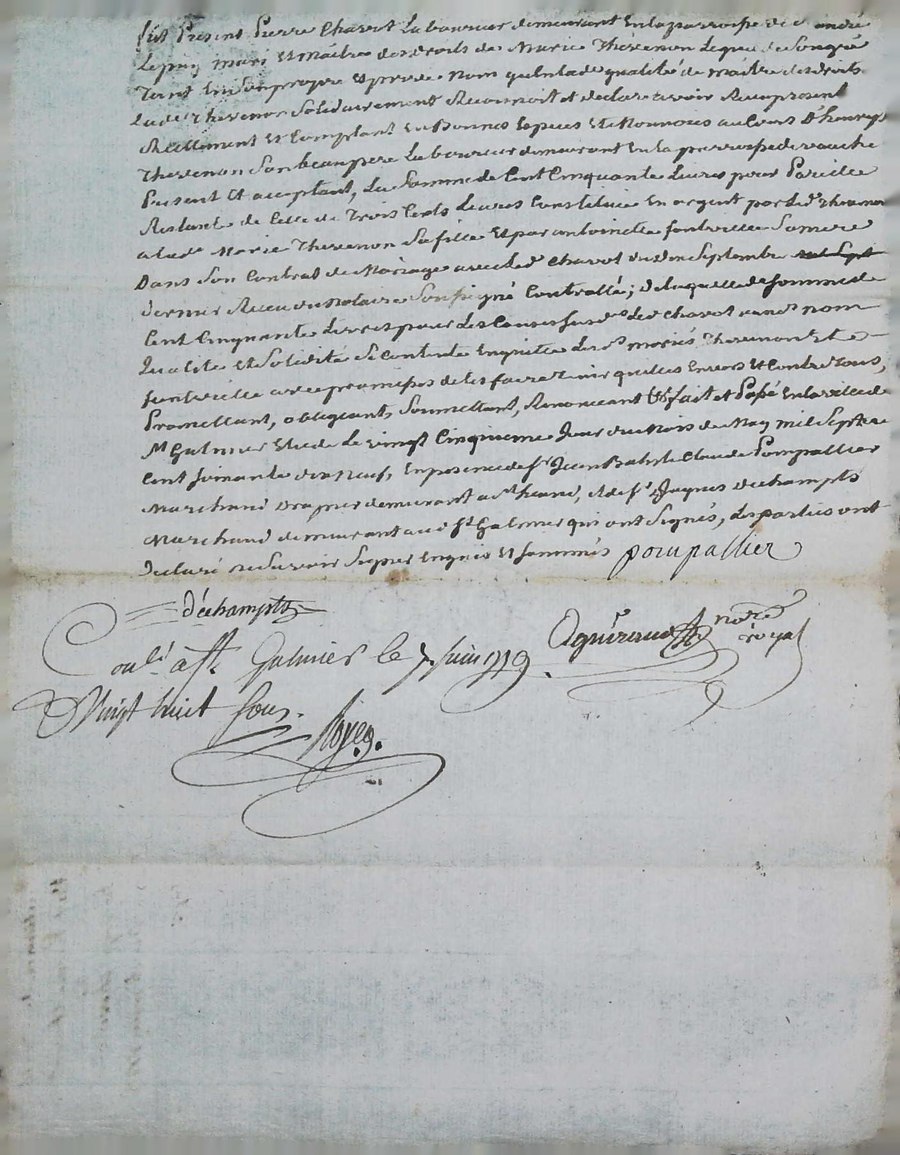 fut Présent Pierre Chavot Laboureur demeurant En la parroisse de St andré
Lepuy mari Et Maître des droits de Marie Thevenon Lequel de Son gré
Tant En Son propre Et privé nom qu'en lad. qualité de maître des droits
de lad. Thevenon Solidairement Reconnoit et declare avoir Reçu présent
Réellement Et Comptant En Bonnes Espèces Et Monnoies au Cours D'
Thevenon Son beau pere Laboureur demeurant En la parroisse de
Present Et acceptant, La Somme de Cent Cinquante Livres pour Pareille
Restante de Celle de Trois Cents Livres Constituée En argent par led. Thevenon
a lad. Marie Thevenon Sa fille Et par antoinette fontvieille Sa mere
Dans Son Contrat de Mariage avec led. Chavot du Septembre
dernier Reçu du Notaire Soussigné Controllé; de laquelle Somme de
Cent Cinquante Livres pour les Causes Susd. led. Chavot nom
Qualité Et Solidité Se Contente En quitte les d. mariés Thevenon Et
fontvieille avec promesse de les faire Tenir quittes Envers Et Contre tous,
Promettant, obligeant, Soumettant, Renonçant fait et Passé En la ville de
St Galmier Etude Le vingt Cinquieme Jour du Mois de May mil Sept
Cent Soixante dix neuf, En présence de Sr Jean Claude Pompallier
Marchand Drapier demeurant a , et de Sr Jaques Dechampts
Marchand demeurant aud. St Galmier qui ont Signés, les parties ont
declaré ne Savoir Signer Enquis Et Sommés pompallier
déchampts
notre
royal
Conlé à St Galmier le 7 Juin 1779.
Vingt huit Sous.